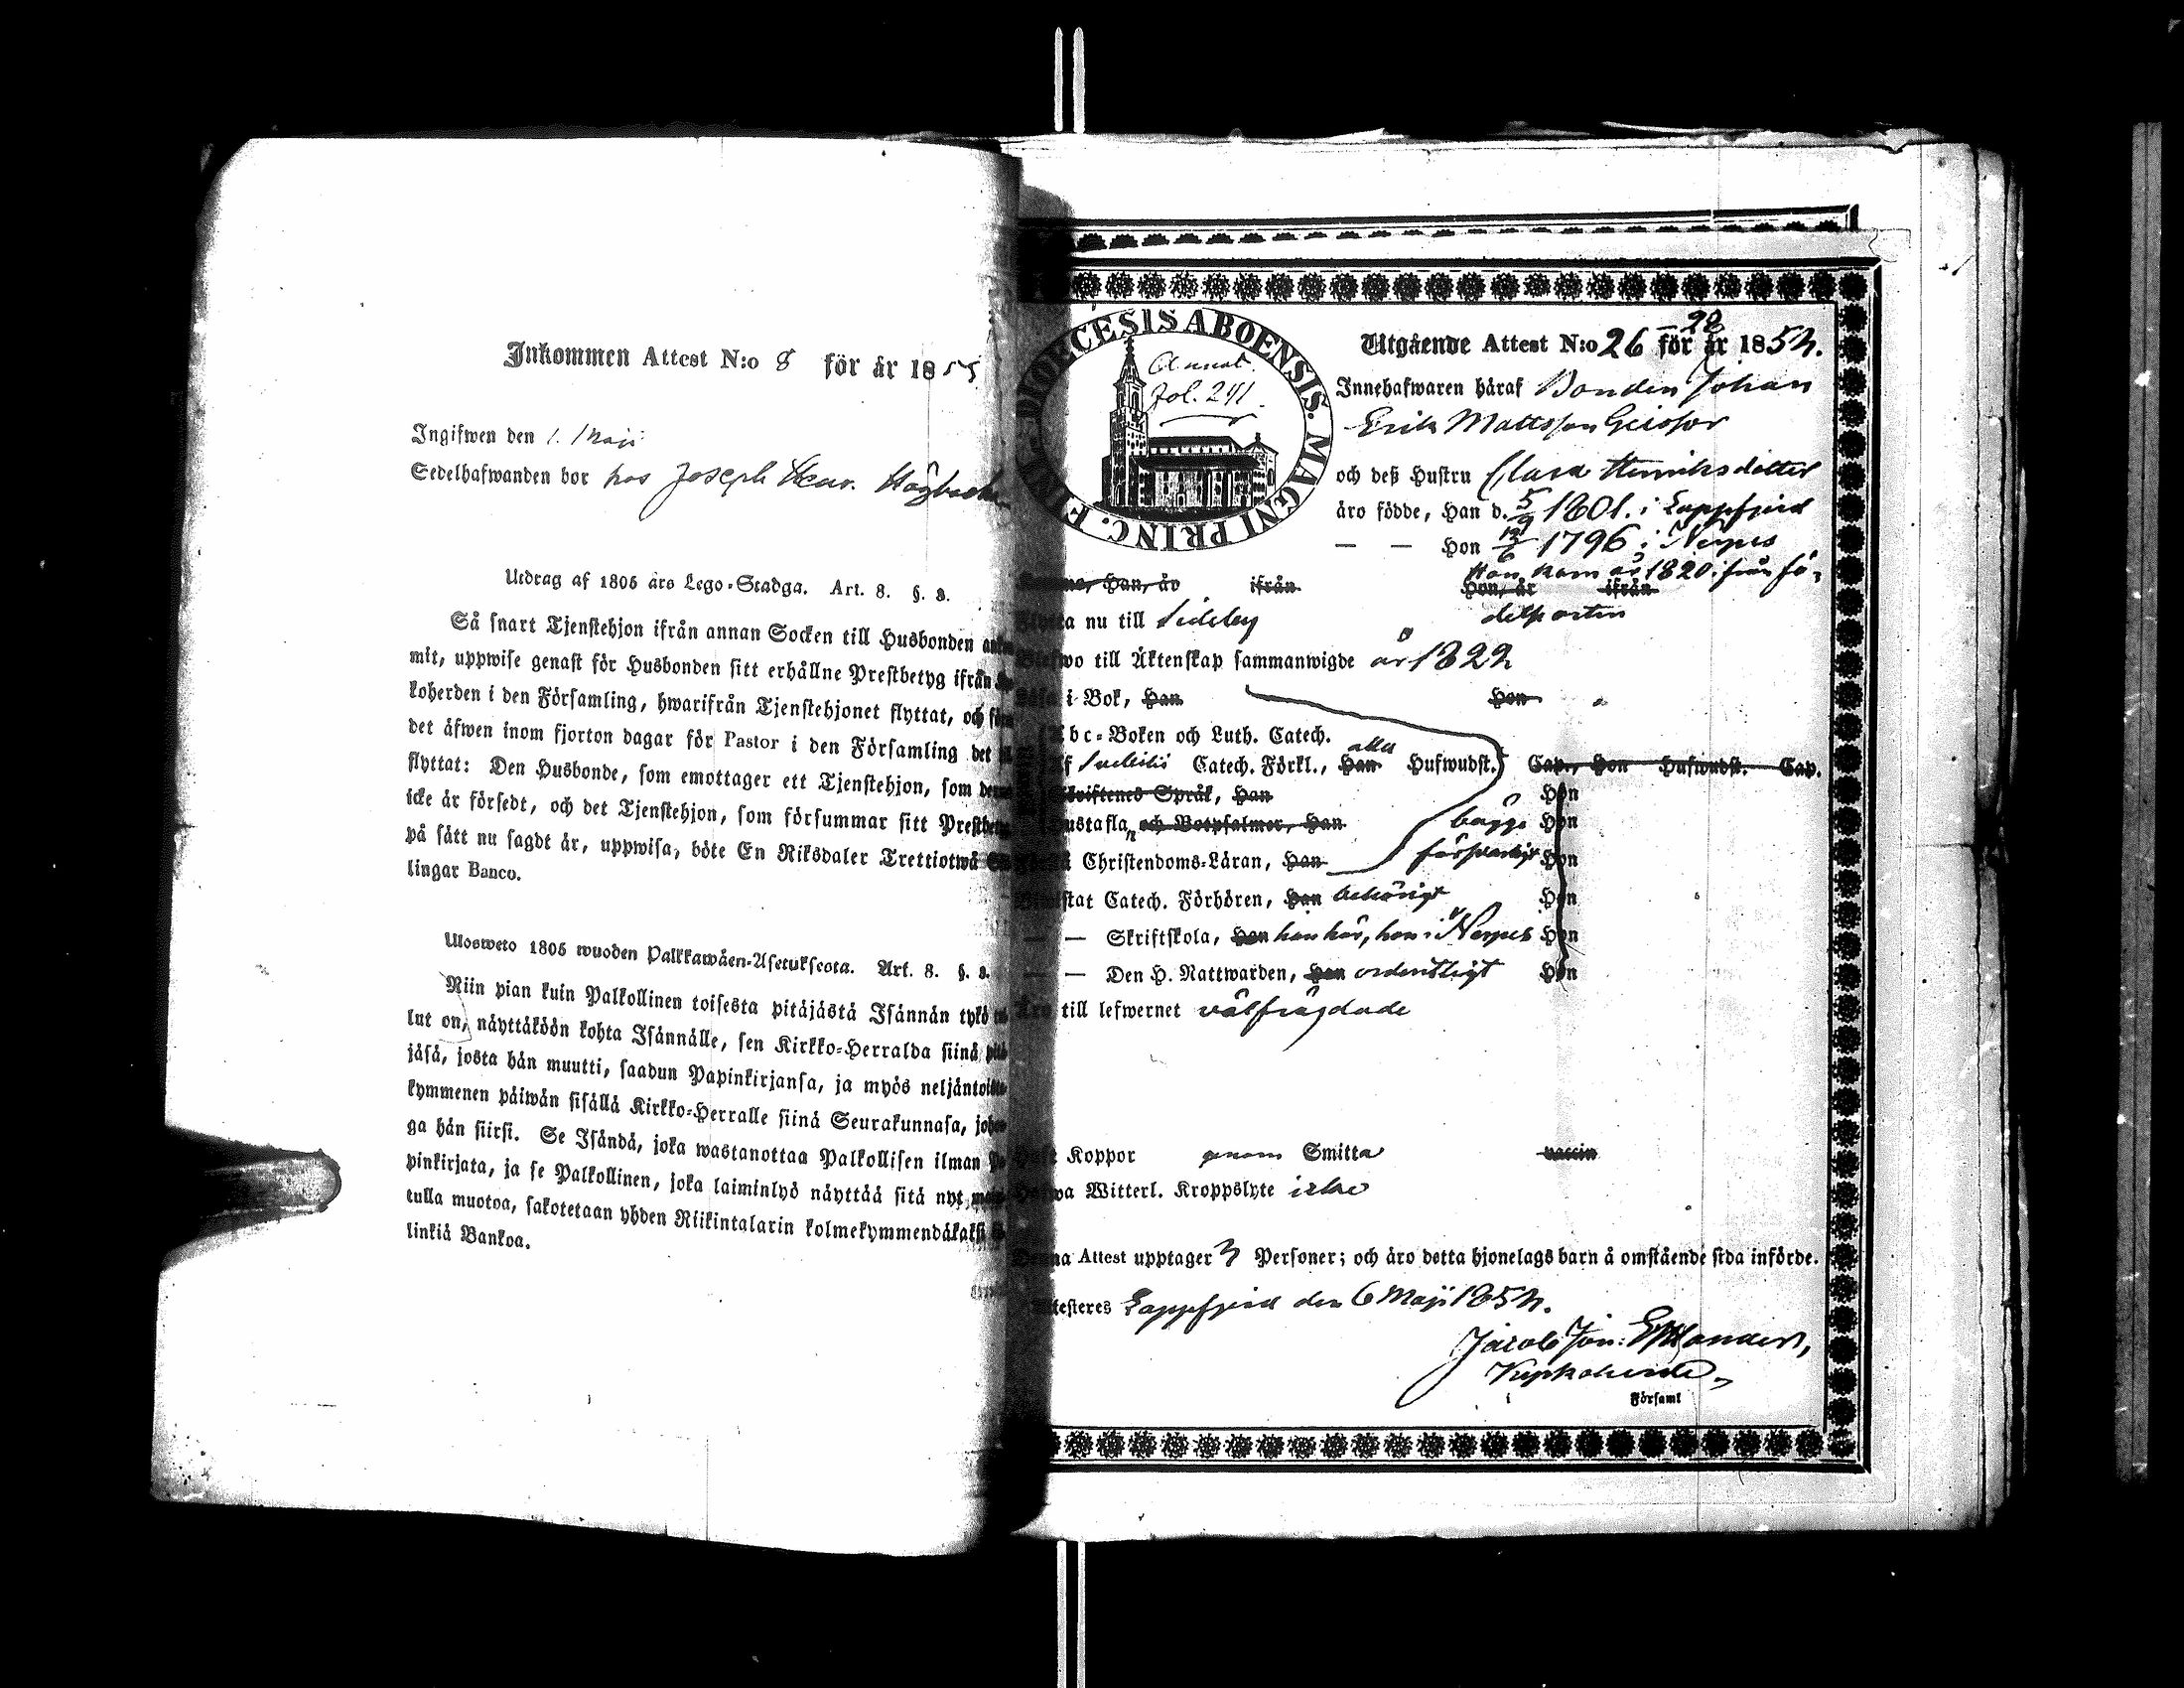 Inkommen Attest N:o 8 för år 1855
Ingifwen den 1. Maji
Sedelhafwanden bor hos Joseph Henr. Högback
Utdrag af 1805 års Lego-Stadga. Art. 8. §. 3.
Så snart Tjenstehjon ifrån annan Socken till Husbonden ankom
mit, uppwise genast för Husbonden sitt erhållne Prestbetyg ifrån
koherden i den Församling, hwarifrån Tjenstehjonet flyttat, och
det äfwen inom fjorton dagar för Pastor i den Församling det
flyttat: Den Husbonde, som emottager ett Tjenstehjon, som
icke är försedt, och det Tjenstehjon, som försummar sitt Prestbetyg
på sätt nu sagdt är, uppwisa, böte En Riksdaler Trettiotwå
lingar Banco.
Ulosweto 1805 wuoden Palkkawäen-Asetuksesta. Art. 8. §. 3.
Niin pian kuin Palkollinen toisesta pitäjästä Isännän tykö
lut on, näyttäköön kohta Isännälle, sen Kirkko-Herralda siinä
jäsä, josta hän muutti, saadun Papinkirjansa, ja myös neljäntoista
kymmenen päiwän sisällä Kirkko-Herralle siinä Seurakunnasa,
ga hän siirsi. Se Isändä, joka wastanottaa Palkollisen ilman
pinkirjata, ja se Palkollinen, joka laiminlyö näyttää sitä nyt
tulla muotoa, sakotetaan yhden Riikintalarin kolmekymmendäkaksi
linkiä Bankoa.
DIOECESIS ABOENSIS. MAGNI PRINC.
Annot.
Fol. 241
28
Utgående Attest N:o 26 för år 1854.
Innehafwaren häraf Bonden Johan
Erik Mattsson Geisor
och deß Hustru Clara Henriksdotter
äro födde, Han d. 5/9 1801. i Lappfjerd
— — Hon 12/6 1796 i Nerpes
Hon kom år 1820 från fö-
Han, är ifrån Hon, är ifrån
delseorten
Flytta nu till Sideby
Blefwo till Äktenskap sammanwigde år 1822
i Bok, Han Hon
Abc-Boken och Luth. Catech.
Af Svebilii Catech. Förkl., Han alla Hufwudst. Cap., Hon Hufwudst. Cap.
Skriftenes Språk, Han Hon
Hustafla och Botpsalmer, Han bägge Hon
Christendoms-Läran, Han försvarligt Hon
Biwistat Catech. Förhören, Han behörigt Hon
— — Skriftskola, Han han här, hon i Nerpes Hon
— — Den H. Nattwarden, Han ordentligt Hon
Äro till lefwernet välfrägdade
Haft Koppor genom Smitta vaccin
Hafwa Witterl. Kroppslyte icke
Denna Attest upptager 3 Personer; och äro detta hjonelags barn å omstående sida införde.
Attesteres Lappfjerd den 6 Maji 1854.
Jacob Jon: Estlander,
Kyrkoherde
i Församl